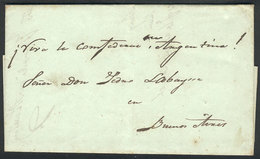 ¡Viva la confederacion Argentina!
Señor Don Pedro Labaysse
en
Buenos Aires